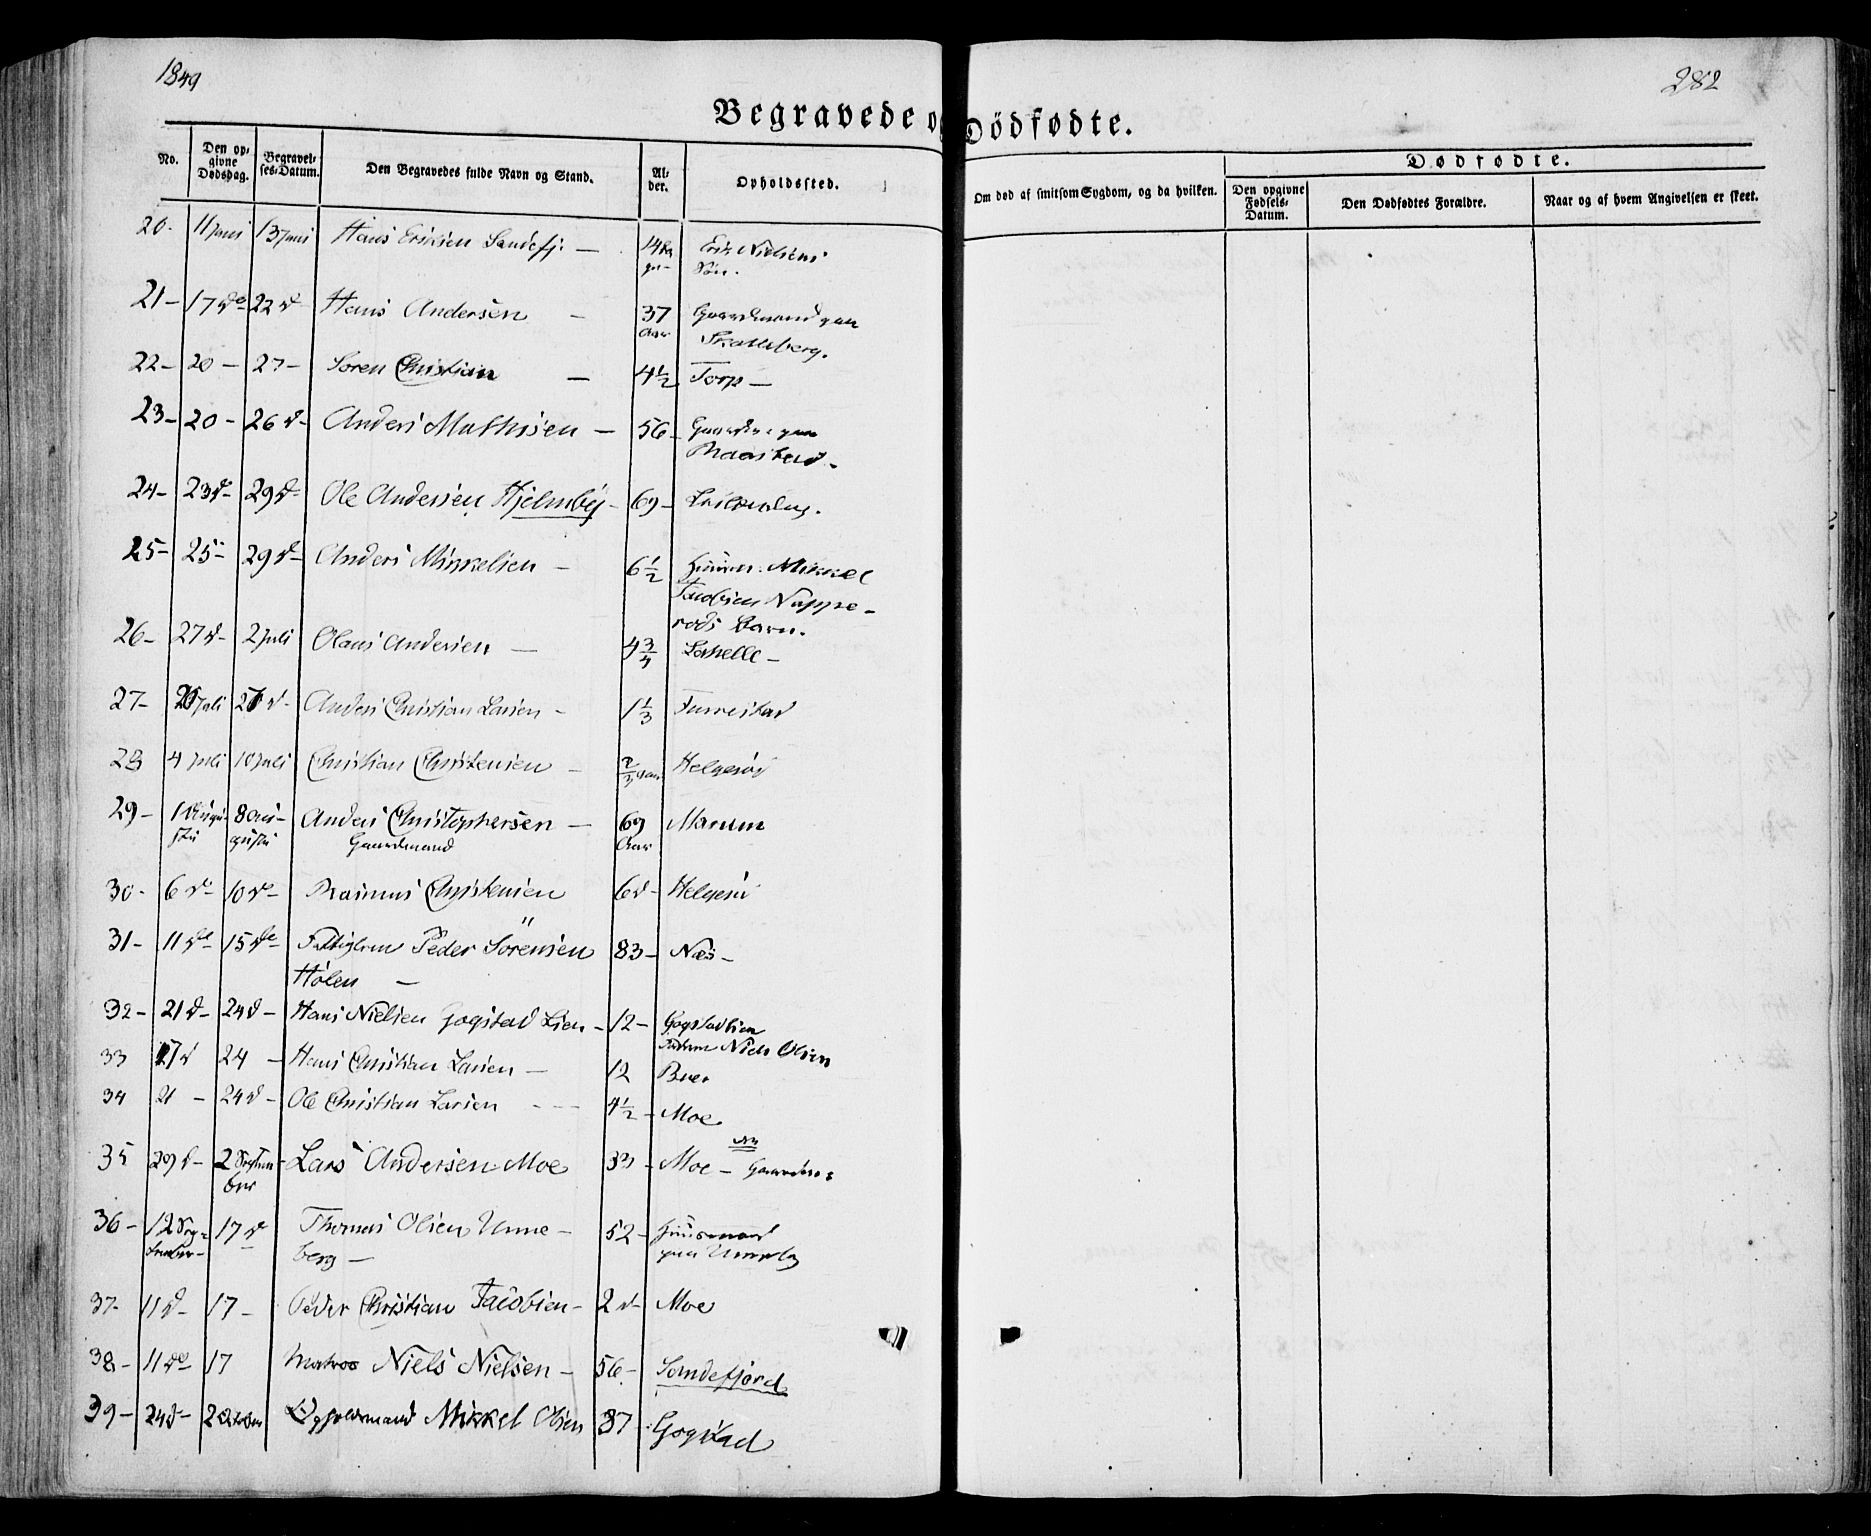 1849
282
Begravede o
Dødfødte.
No.
Den op-
givne
Dødsdag.
Begravel-
ses-Datum.
Den Begravedes fulde Navn og Stand.
Al-
der.
Opholdssted.
Om død af smitsom Sygdom, og da hvilken.
Dødfødte.
Den opgivne
Fødsels-
Datum.
Den Dødfødtes Forældre.
Naar og af hvem Angivelsen er skeet.
20. 11 Juni 13 Juni Hans Eriksen Sandefj: — 14 Da Erik Nielsens
ge- Søn.
21- 17 do 22 d Hans Andersen — 37 Gaardmand paa
Aar
22- 20 - 27- Søren Christian — 4½ Torp —
23- 20 - 26 d- Anders Mathisen — 56- paa
24- 23 d- 29 d- Ole Andersen Hjelmbÿ - 69-
25- 25- 29 d- Anders Mikkelsen — 6½ Mikkel
Jacobsen Nappe-
røds Barn.
26- 27 d- 2 Juli Olaus Andersen — 4¾
27- Juli d- Anders Christian Larsen - 1⅓ Furrestad
28 4 Juli 10 Juli Christian Christensen — ⅔ Aar Helgerød
29- 1 Augu- 8 Au- Anders Christophersen — 69 Marum
sti gusti Gaardmand Aar
30- 6 do 10 do- Rasmus Christensen 6 d- Helgerød
31- 11 do 15 do Fattiglem Peder Sørensen 83- Næs-
Holen —
32- 21 d- 24 d- Hans Nielsen Gogstad Lien - 12- Gogstadlien
Niels Olsen
33 17 d 24 - Hans Christian Larsen — 12 Buer
34 21 - 24 d- Ole Christian Larsen - - - 4½ - Moe
35 29 d- 2 Septem- Lars Andersen Moe 33 - Moe —
ber
36- 12 Sep- 17 d Thomas Olsen Unne- 52- Huusmand
tember- berg — paa
37- 11 d- 17- Peder Christian Jacobsen- 2 d- Moe
38- 11 do 17 Matros Niels Nielsen — 56- Sandefjord
39- 24 d- 2 October Mikkel Olsen 37- Gogstad